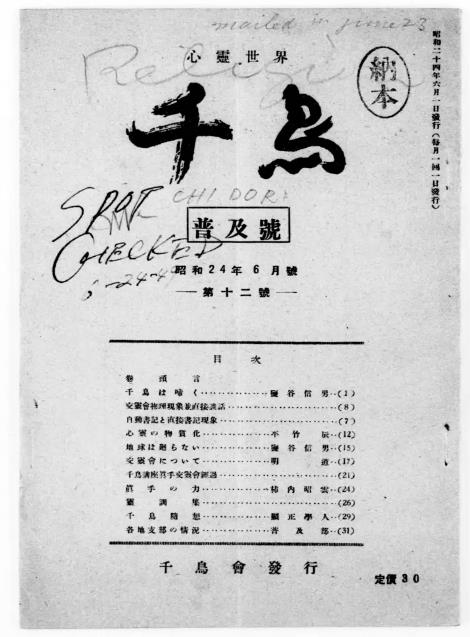 mailed in June 23
Religion
心靈世界
納本
昭和二十四年六月一日發行(每月一回一日發行)
千鳥
CHIDORI
SPOT
CHECKED
6-24-49
普及號
昭和24年6月號
第十二號
目次
卷頭言
千鳥は啼く 鹽谷信男 (1)
交靈會物理現象並直接談話 (8)
自動書記と直接書記現象 (7)
心靈の物質化 不竹辰 (12)
地球は廻らない 鹽谷信男 (15)
交靈會について 明道 (17)
千鳥講座眞手交靈會經過 (21)
眞手の力 柿内昭雲 (24)
靈調集 (26)
千鳥隨想 顯正學人 (29)
各地支部の情況 普及部 (31)
千鳥會發行
定價30